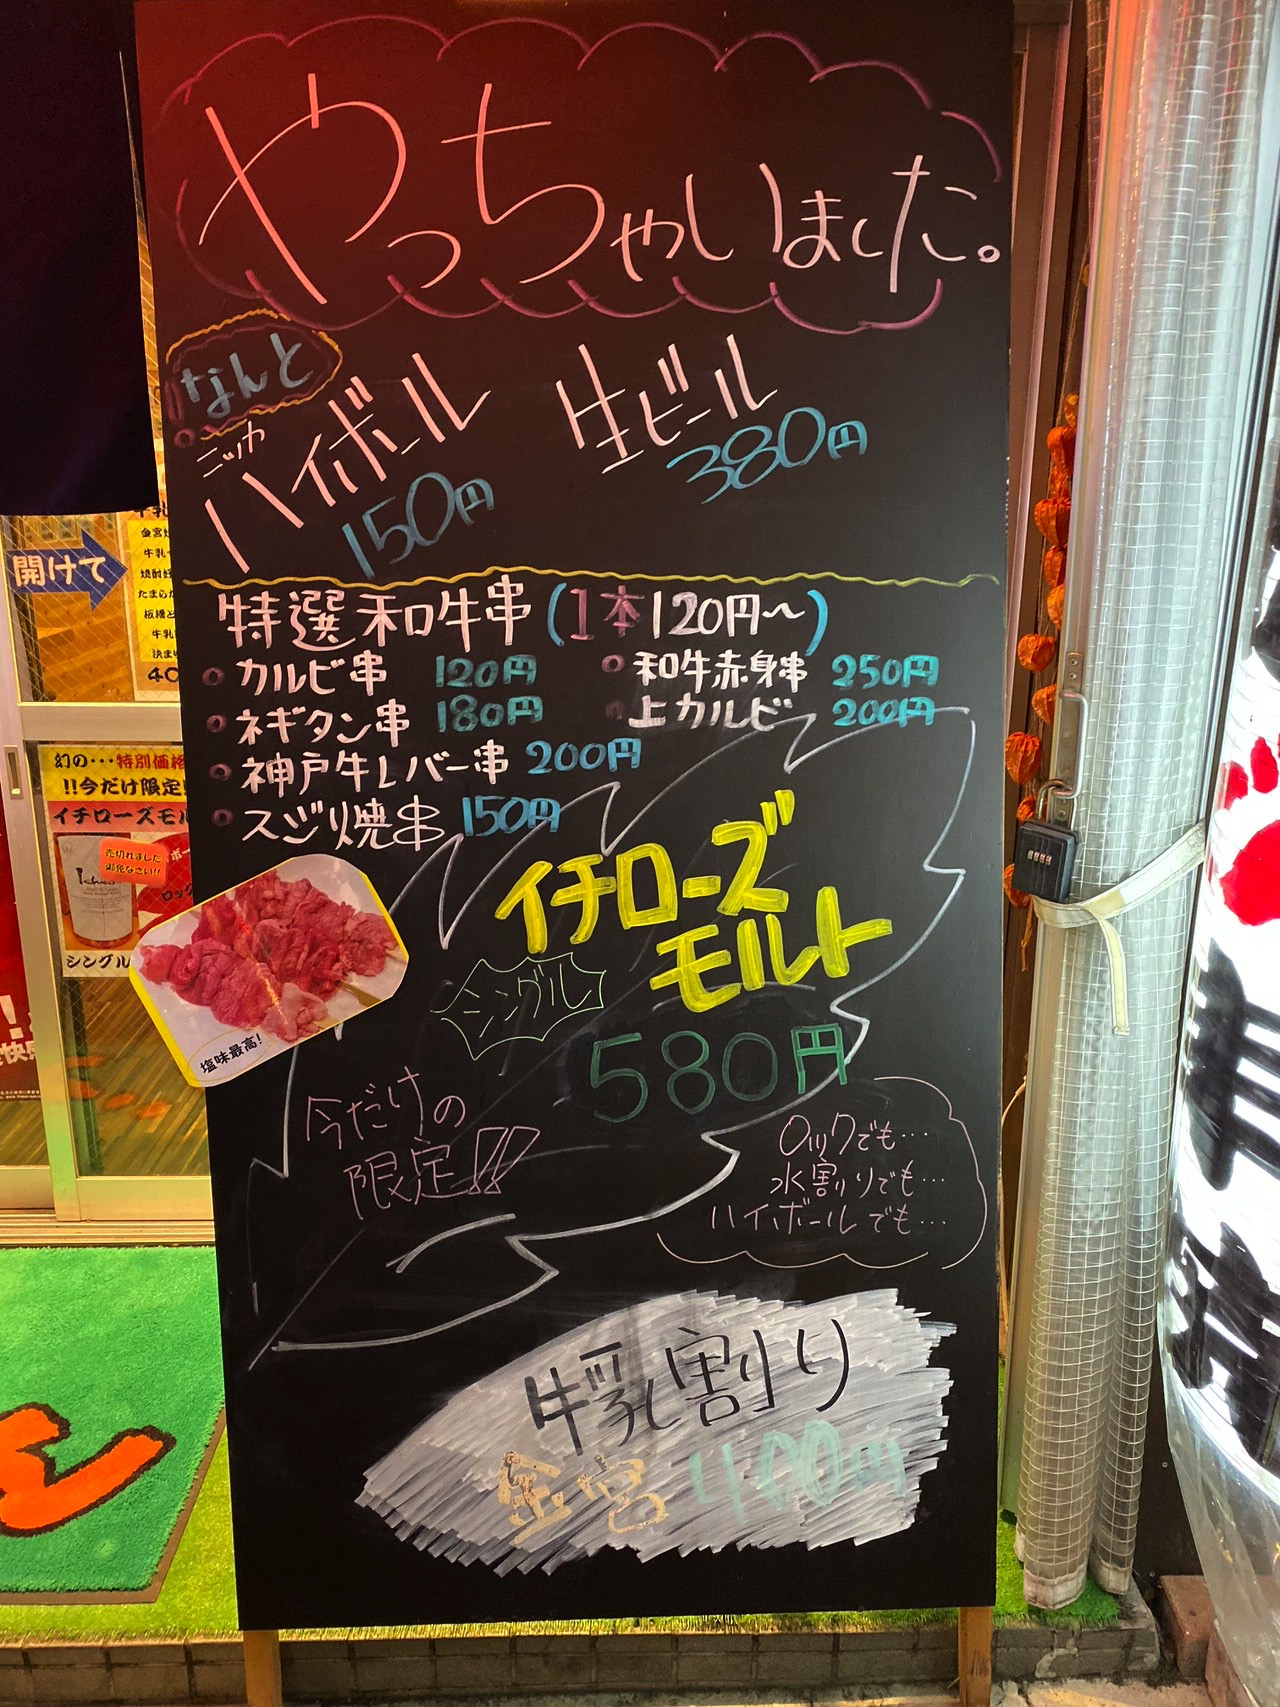 やっちゃいました。
なんと
ニッカ
ハイボール
150円
生ビール
380円
特選和牛串(1本120円〜)
カルビ串 120円
和牛赤身串 250円
ネギタン串 180円
上カルビ 200円
神戸牛レバー串 200円
スジ焼串 150円
イチローズ
モルト
シングル
580円
今だけの
限定!!
ロックでも…
水割りでも…
ハイボールでも…
牛乳割り
金宮 400円
塩味最高!
開けて
幻の…特別価格
!!今だけ限定!
イチローズモル
売切れました
御免なさい!!
シングル